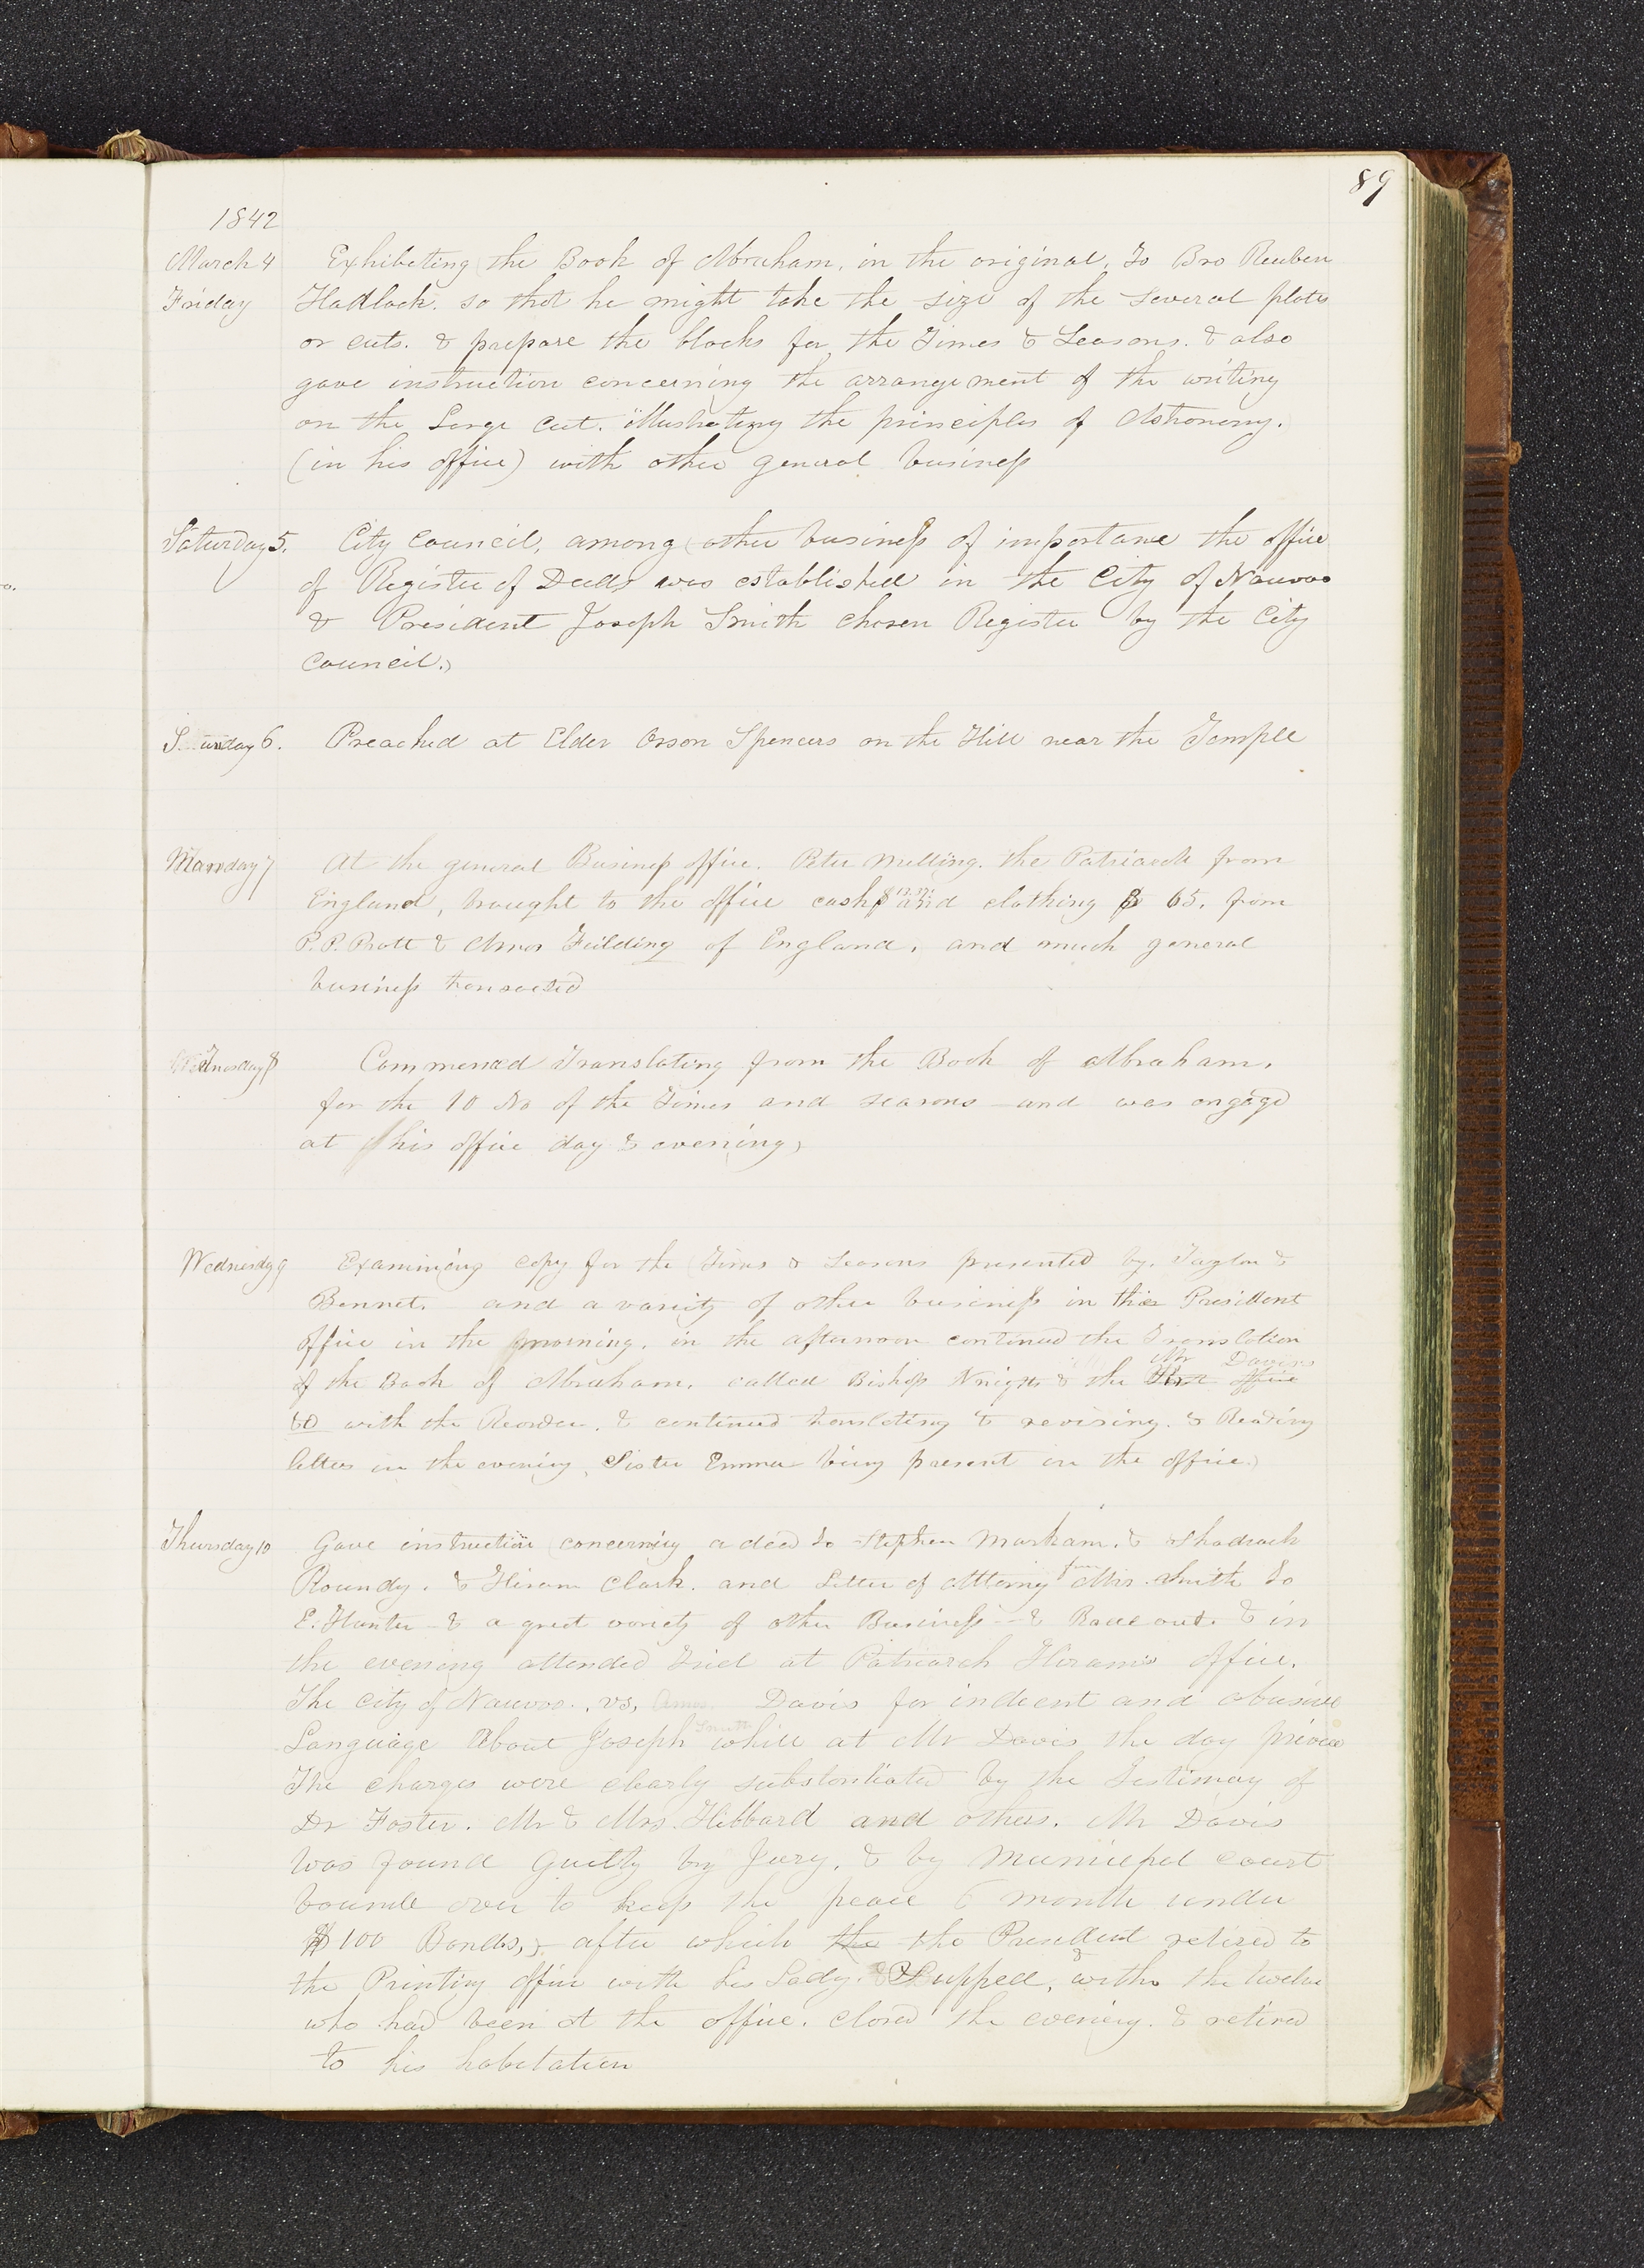 89
1842
March 4 Exhibeting the Book of Abraham, in the original, To Bro Reuben
Friday Hadlock. so that he might take the size of the several plates
or cuts. & prepare the blocks for the Times & Seasons. & also
gave instruction concerning the arrangement of the writing
on the Large cut. illustrating the principles of Astronomy.
(in his office) with other general business
Saturday 5. City Council, among other business of importance the office
of Register of Deeds was established in the City of Nauvoo
& President Joseph Smith chosen Register by the City
Council.
Sunday 6. Preached at Elder Orson Spencers on the Hill near the Temple
Monday 7 At the general Business office. Peter Melling. the Patriarch from
England, brought to the office cash $ and clothing $ 65. from
P. P. Pratt & Amos Feilding of England, and much general
business transacted
Tuesday 8 Commenced Translating from the Book of Abraham,
for the 10 No of the Times and seasons — and was engaged
at his office day & evening
Wednesday 9 Examining copy for the Times & Seasons presented by. Taylor &
Bennet. and a variety of other business in the President
office in the morning. in the afternoon continued the Translation
of the Book of Abraham. called Bishop Knights & the Mr Davis's office
&c with the Recorder. & continued translating & revising. & Reading
letters in the evening Sister Emma being present in the office.
Thursday 10 Gave instruction concerning a deed to Stephen Markam. & Shadrach
Roundy. & Hiram Clark. and Letter of Attorny from Mrs. Smith to
E. Hunter — & a great variety of other Business — & Rode out. & in
the evening attended Trial at Patriarch Hiram's office.
The City of Nauvoo. vs. Amos Davis for indecent and abusive
Language About Joseph Smith while at Mr Davis the day previous
The charges were clearly substantiated by the Testimony of
Dr Foster. Mr & Mrs. Hibbard and others. Mr Davis
was found guilty by Jury. & by Municipal court
bound over to keep the peace 6 month under
$100 Bonds, — after which the the President retired to
the Printing office with his Lady. & Supped, & with the twelve
who had been at the office. closed the evening. & retired
to his habitation